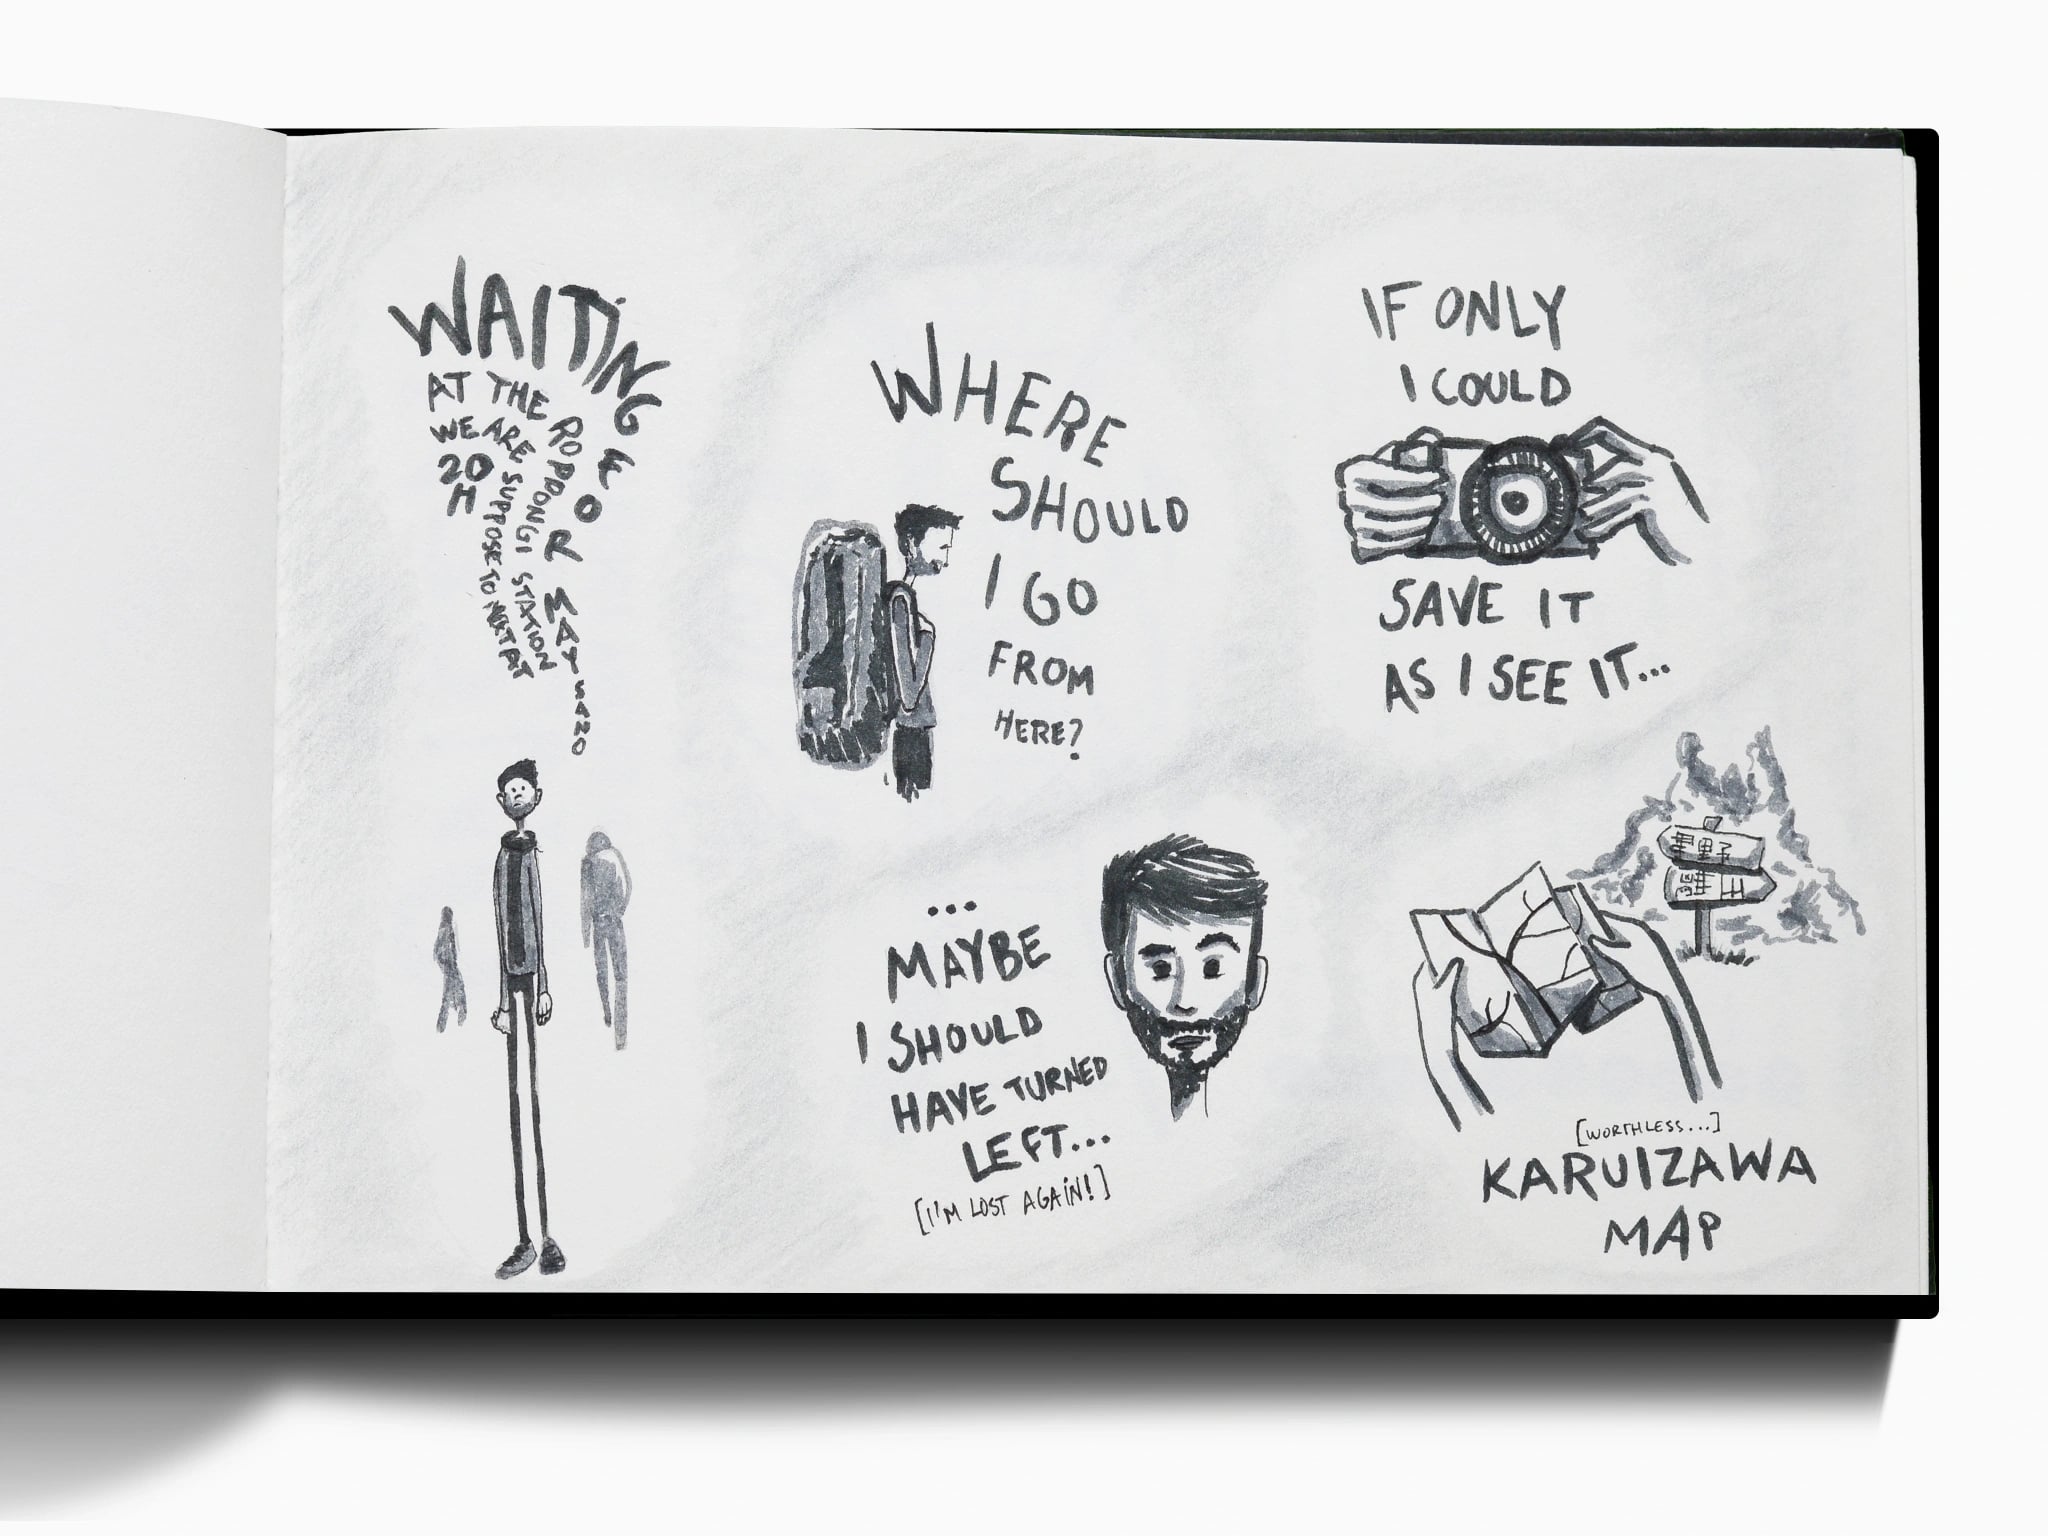 WAITING FOR MAY SANO
AT THE ROPPONGI STATION
WE ARE SUPPOSE TO MEET AT
20 H
WHERE
SHOULD
I GO
FROM
HERE?
IF ONLY
I COULD
SAVE IT
AS I SEE IT...
...
MAYBE
I SHOULD
HAVE TURNED
LEFT...
[I'M LOST AGAIN!]
星野
離山
[WORTHLESS...]
KARUIZAWA
MAP